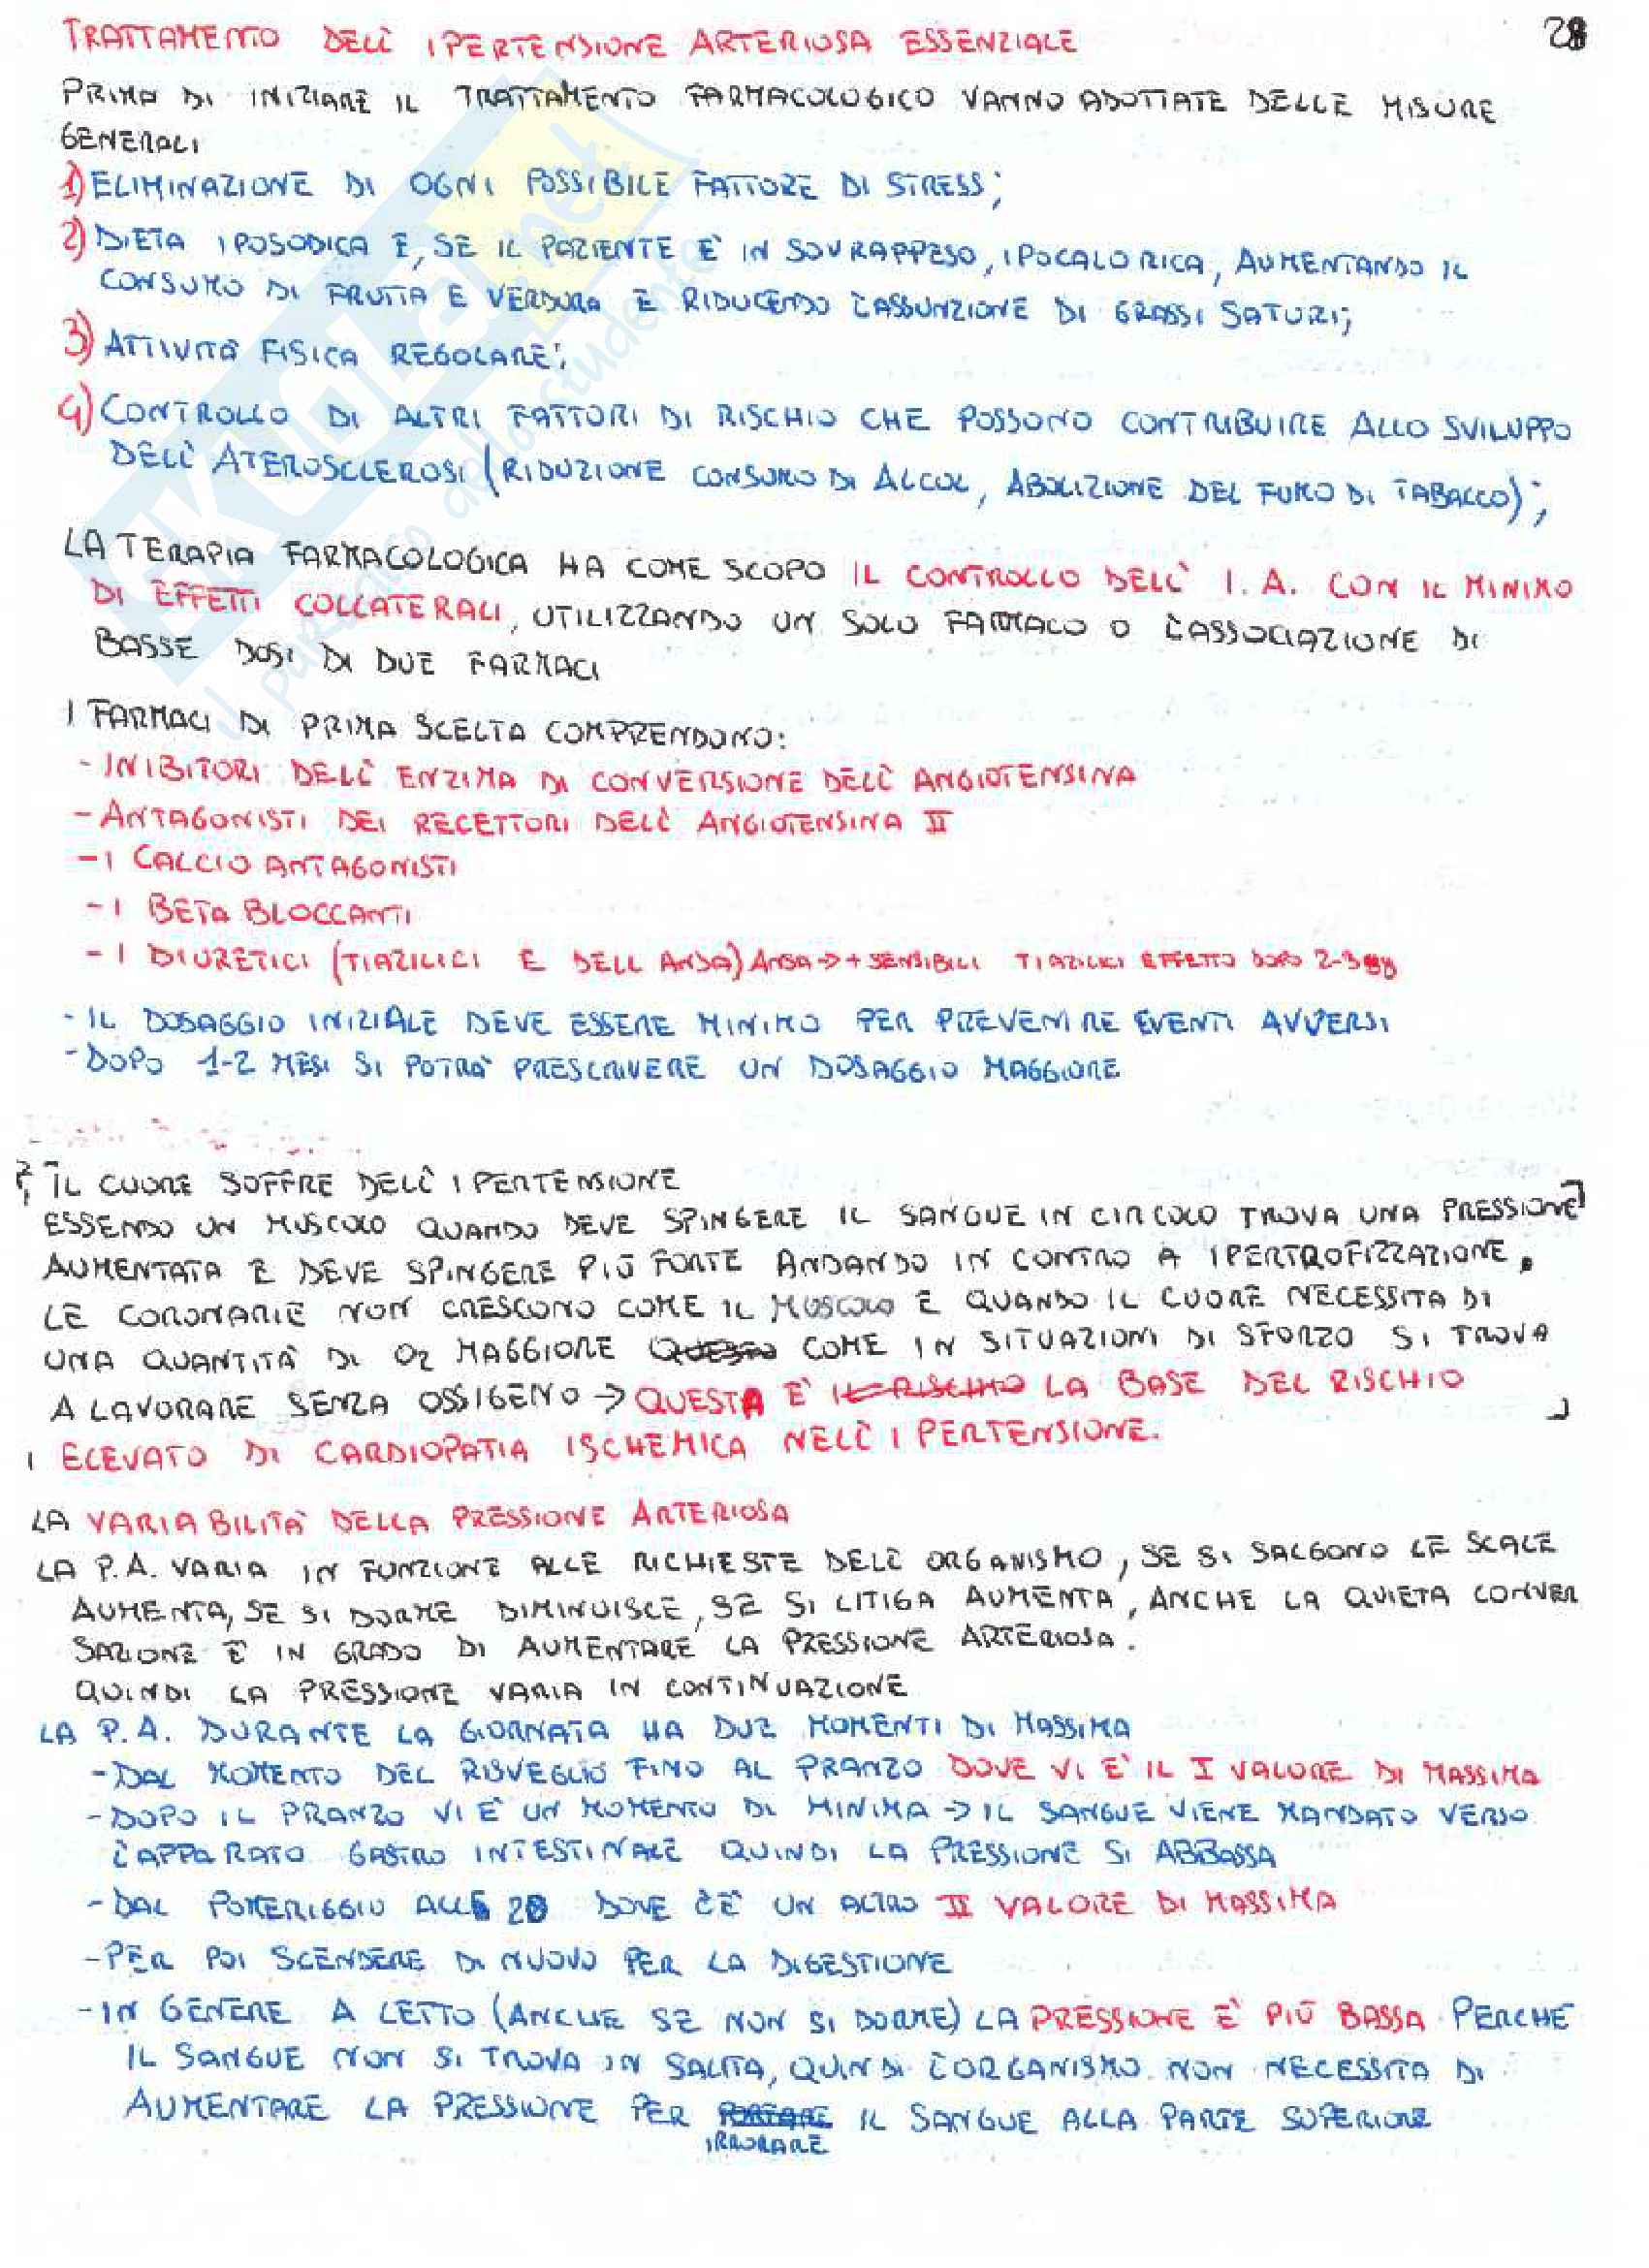 TRATTAMENTO DELL' IPERTENSIONE ARTERIOSA ESSENZIALE
PRIMA DI INIZIARE IL TRATTAMENTO FARMACOLOGICO VANNO ADOTTATE DELLE MISURE
GENERALI
1) ELIMINAZIONE DI OGNI POSSIBILE FATTORE DI STRESS;
2) DIETA IPOSODICA E, SE IL PAZIENTE E' IN SOVRAPPESO, IPOCALORICA, AUMENTANDO IL
CONSUMO DI FRUTTA E VERDURA E RIDUCENDO L'ASSUNZIONE DI GRASSI SATURI;
3) ATTIVITÀ FISICA REGOLARE;
4) CONTROLLO DI ALTRI FATTORI DI RISCHIO CHE POSSONO CONTRIBUIRE ALLO SVILUPPO
DELL' ATEROSCLEROSI (RIDUZIONE CONSUMO DI ALCOL, ABOLIZIONE DEL FUMO DI TABACCO);
LA TERAPIA FARMACOLOGICA HA COME SCOPO IL CONTROLLO DELL' I.A. CON IL MINIMO
DI EFFETTI COLLATERALI, UTILIZZANDO UN SOLO FARMACO O L'ASSOCIAZIONE DI
BASSE DOSI DI DUE FARMACI
I FARMACI DI PRIMA SCELTA COMPRENDONO:
- INIBITORI DELL' ENZIMA DI CONVERSIONE DELL' ANGIOTENSINA
- ANTAGONISTI DEI RECETTORI DELL' ANGIOTENSINA II
- I CALCIO ANTAGONISTI
- I BETA BLOCCANTI
- I DIURETICI (TIAZILICI E DELL ANSA) ANSA → + SENSIBILI TIAZILICI EFFETTO DOPO 2-3 gg
- IL DOSAGGIO INIZIALE DEVE ESSERE MINIMO PER PREVENIRE EVENTI AVVERSI
- DOPO 1-2 MESI SI POTRÀ PRESCRIVERE UN DOSAGGIO MAGGIORE
IL CUORE SOFFRE DELL' IPERTENSIONE
ESSENDO UN MUSCOLO QUANDO DEVE SPINGERE IL SANGUE IN CIRCOLO TROVA UNA PRESSIONE
AUMENTATA E DEVE SPINGERE PIÙ FORTE ANDANDO IN CONTRO A IPERTROFIZZAZIONE.
LE CORONARIE NON CRESCONO COME IL MUSCOLO E QUANDO IL CUORE NECESSITA DI
UNA QUANTITÀ DI O2 MAGGIORE QUESTO COME IN SITUAZIONI DI SFORZO SI TROVA
A LAVORARE SENZA OSSIGENO → QUESTA E' IL RISCHIO LA BASE DEL RISCHIO
ELEVATO DI CARDIOPATIA ISCHEMICA NELL' IPERTENSIONE.
LA VARIABILITÀ DELLA PRESSIONE ARTERIOSA
LA P.A. VARIA IN FUNZIONE ALLE RICHIESTE DELL' ORGANISMO, SE SI SALGONO LE SCALE
AUMENTA, SE SI DORME DIMINUISCE, SE SI LITIGA AUMENTA, ANCHE LA QUIETA CONVER
SAZIONE E' IN GRADO DI AUMENTARE LA PRESSIONE ARTERIOSA.
QUINDI LA PRESSIONE VARIA IN CONTINUAZIONE
LA P.A. DURANTE LA GIORNATA HA DUE MOMENTI DI MASSIMA
- DAL MOMENTO DEL RISVEGLIO FINO AL PRANZO DOVE VI E' IL I VALORE DI MASSIMA
- DOPO IL PRANZO VI E' UN MOMENTO DI MINIMA → IL SANGUE VIENE MANDATO VERSO
L'APPARATO GASTRO INTESTINALE QUINDI LA PRESSIONE SI ABBASSA
- DAL POMERIGGIO ALLE 20 DOVE C'E' UN ALTRO II VALORE DI MASSIMA
- PER POI SCENDERE DI NUOVO PER LA DIGESTIONE
- IN GENERE A LETTO (ANCHE SE NON SI DORME) LA PRESSIONE E' PIÙ BASSA PERCHE'
IL SANGUE NON SI TROVA IN SALITA, QUINDI L'ORGANISMO NON NECESSITA DI
AUMENTARE LA PRESSIONE PER PORTARE IL SANGUE ALLA PARTE SUPERIORE
IRRORARE